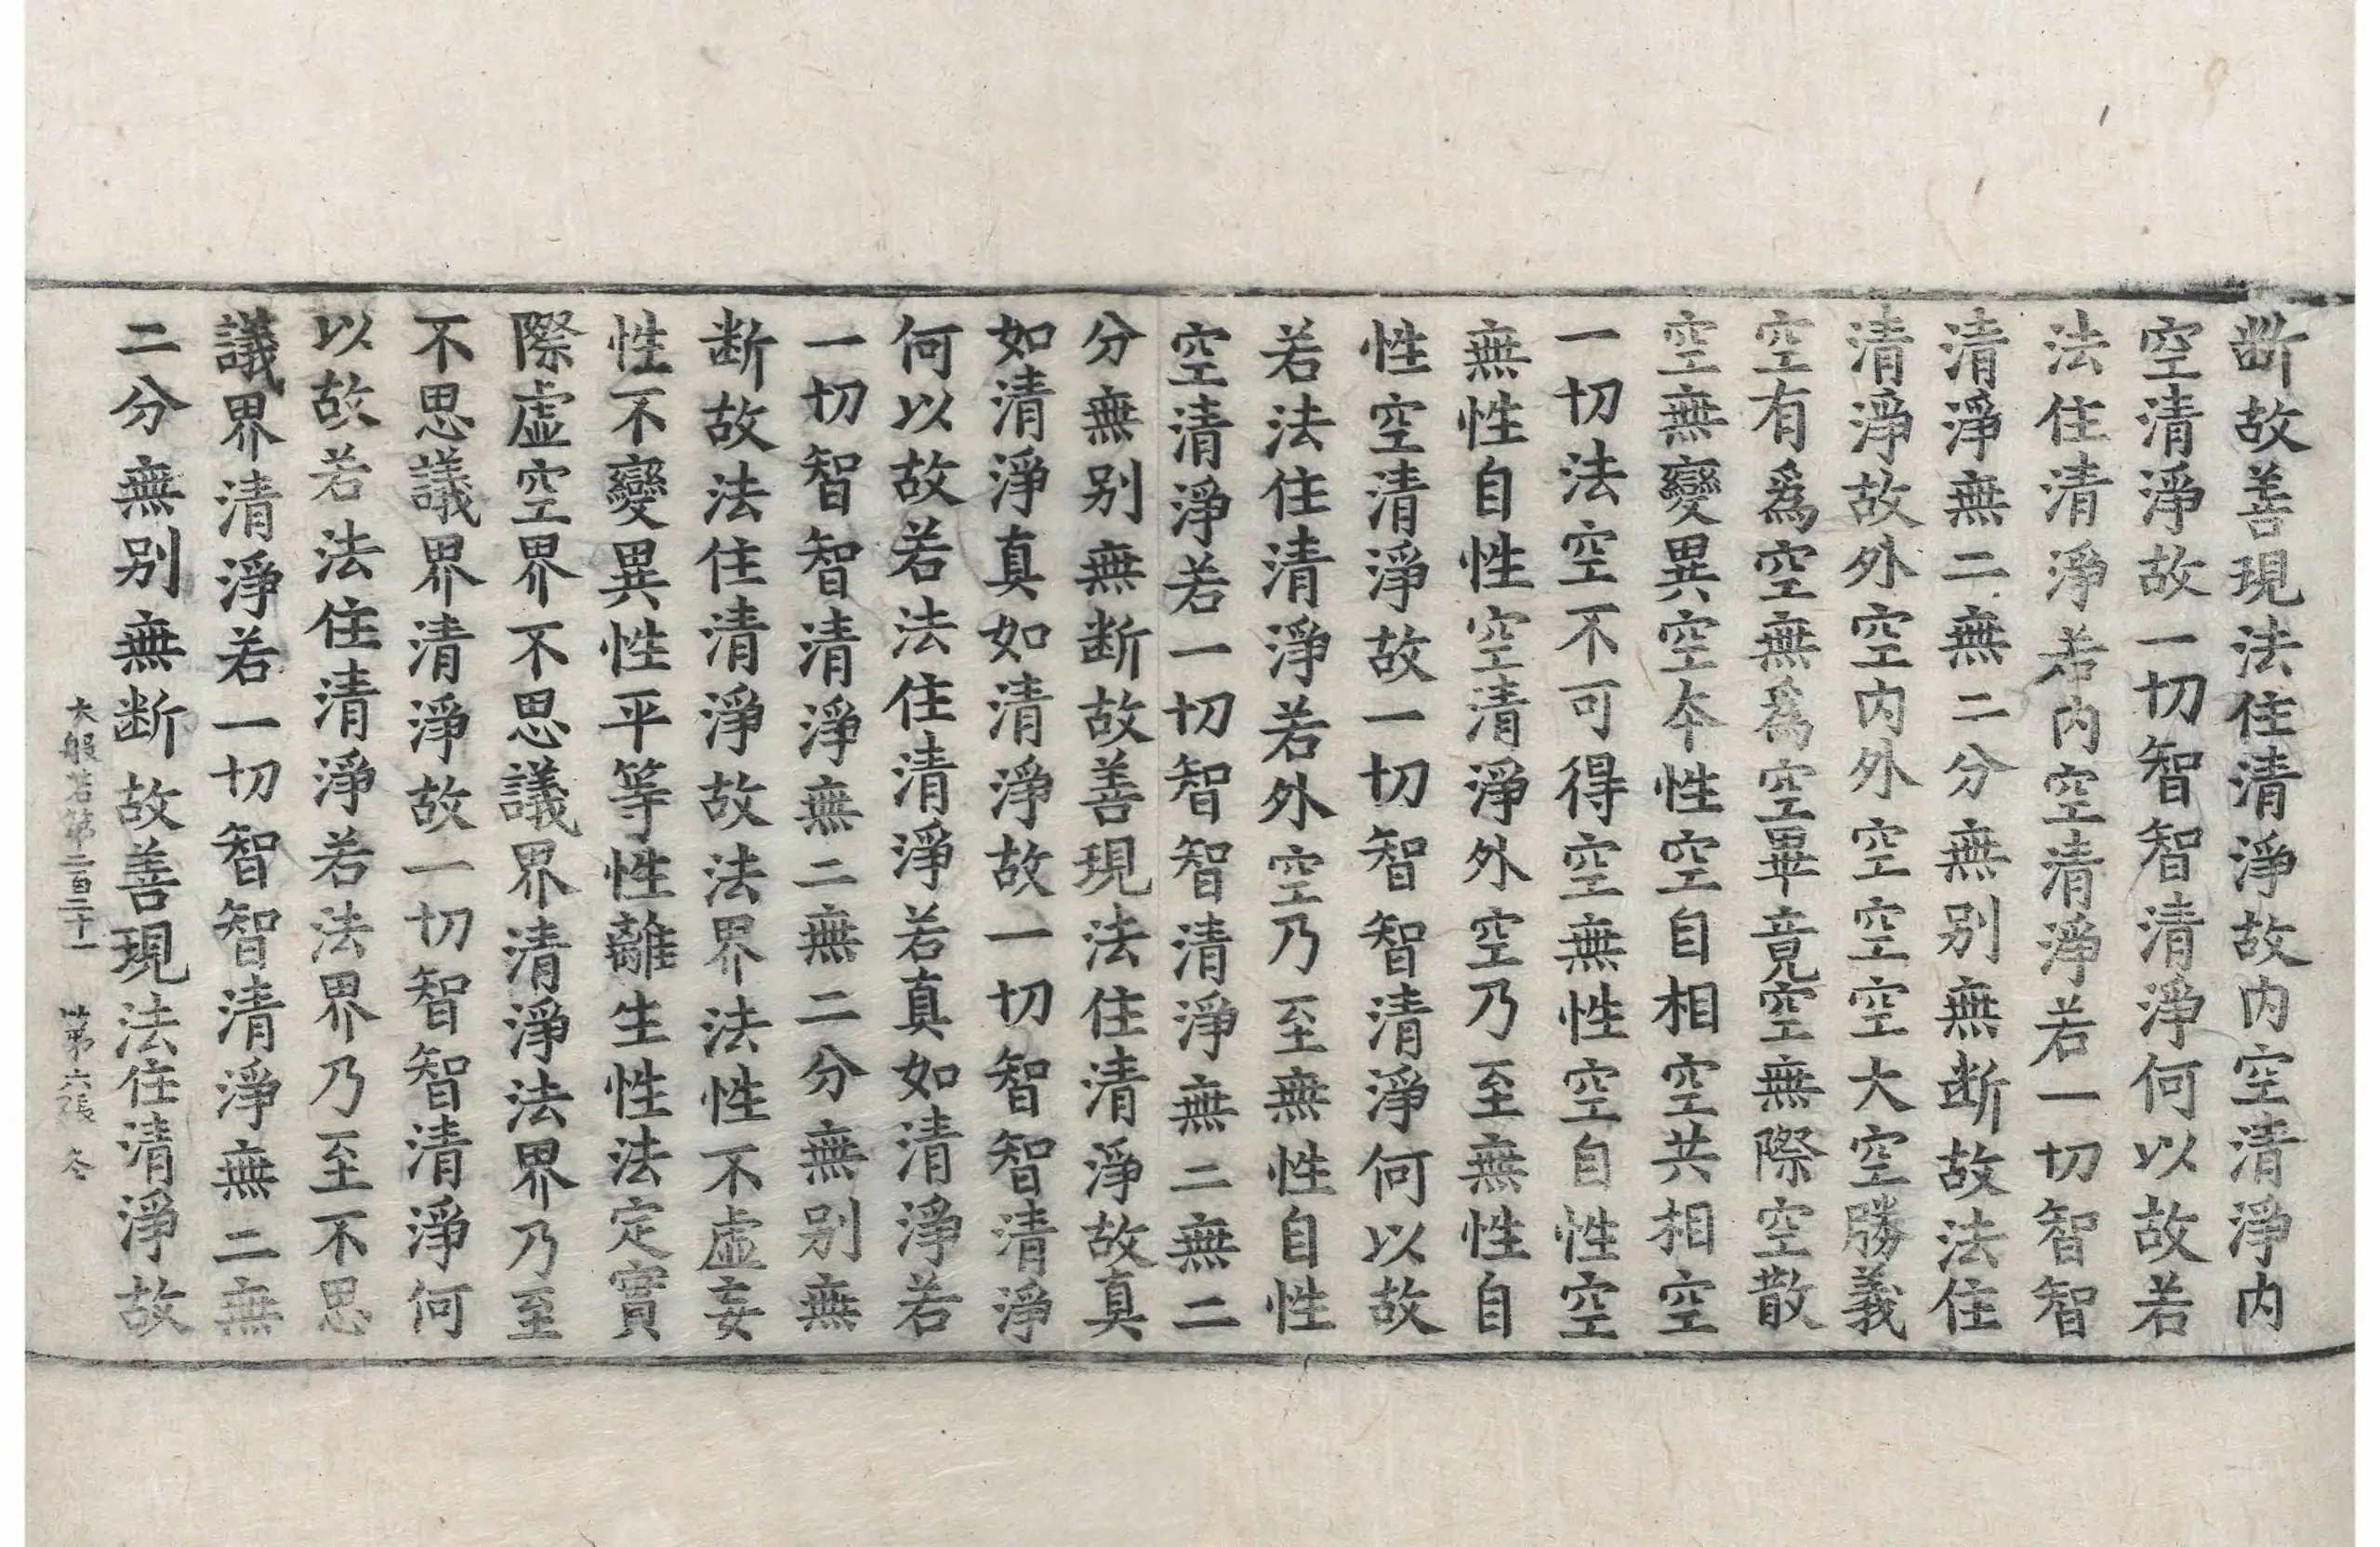 断故善現法住清淨故内空清淨内
空清淨故一切智智清淨何以故若
法住清淨若内空清淨若一切智智
清淨無二無二分無别無断故法住
清淨故外空内外空空空大空勝義
空有爲空無爲空畢竟空無際空散
空無變異空夲性空自相空共相空
一切法空不可得空無性空自性空
無性自性空清淨外空乃至無性自
性空清淨故一切智智清淨何以故
若法住清淨若外空乃至無性自性
空清淨若一切智智清淨無二無二
分無别無断故善現法住清淨故真
如清淨真如清淨故一切智智清淨
何以故若法住清淨若真如清淨若
一切智智清淨無二無二分無别無
断故法住清淨故法界法性不虚妄
性不變異性平等性離生性法定實
際虚空界不思議界清淨法界乃至
不思議界清淨故一切智智清淨何
以故若法住清淨若法界乃至不思
議界清淨若一切智智清淨無二無
二分無别無断故善現法住清淨故
大般若第二百二十一 第六張 冬